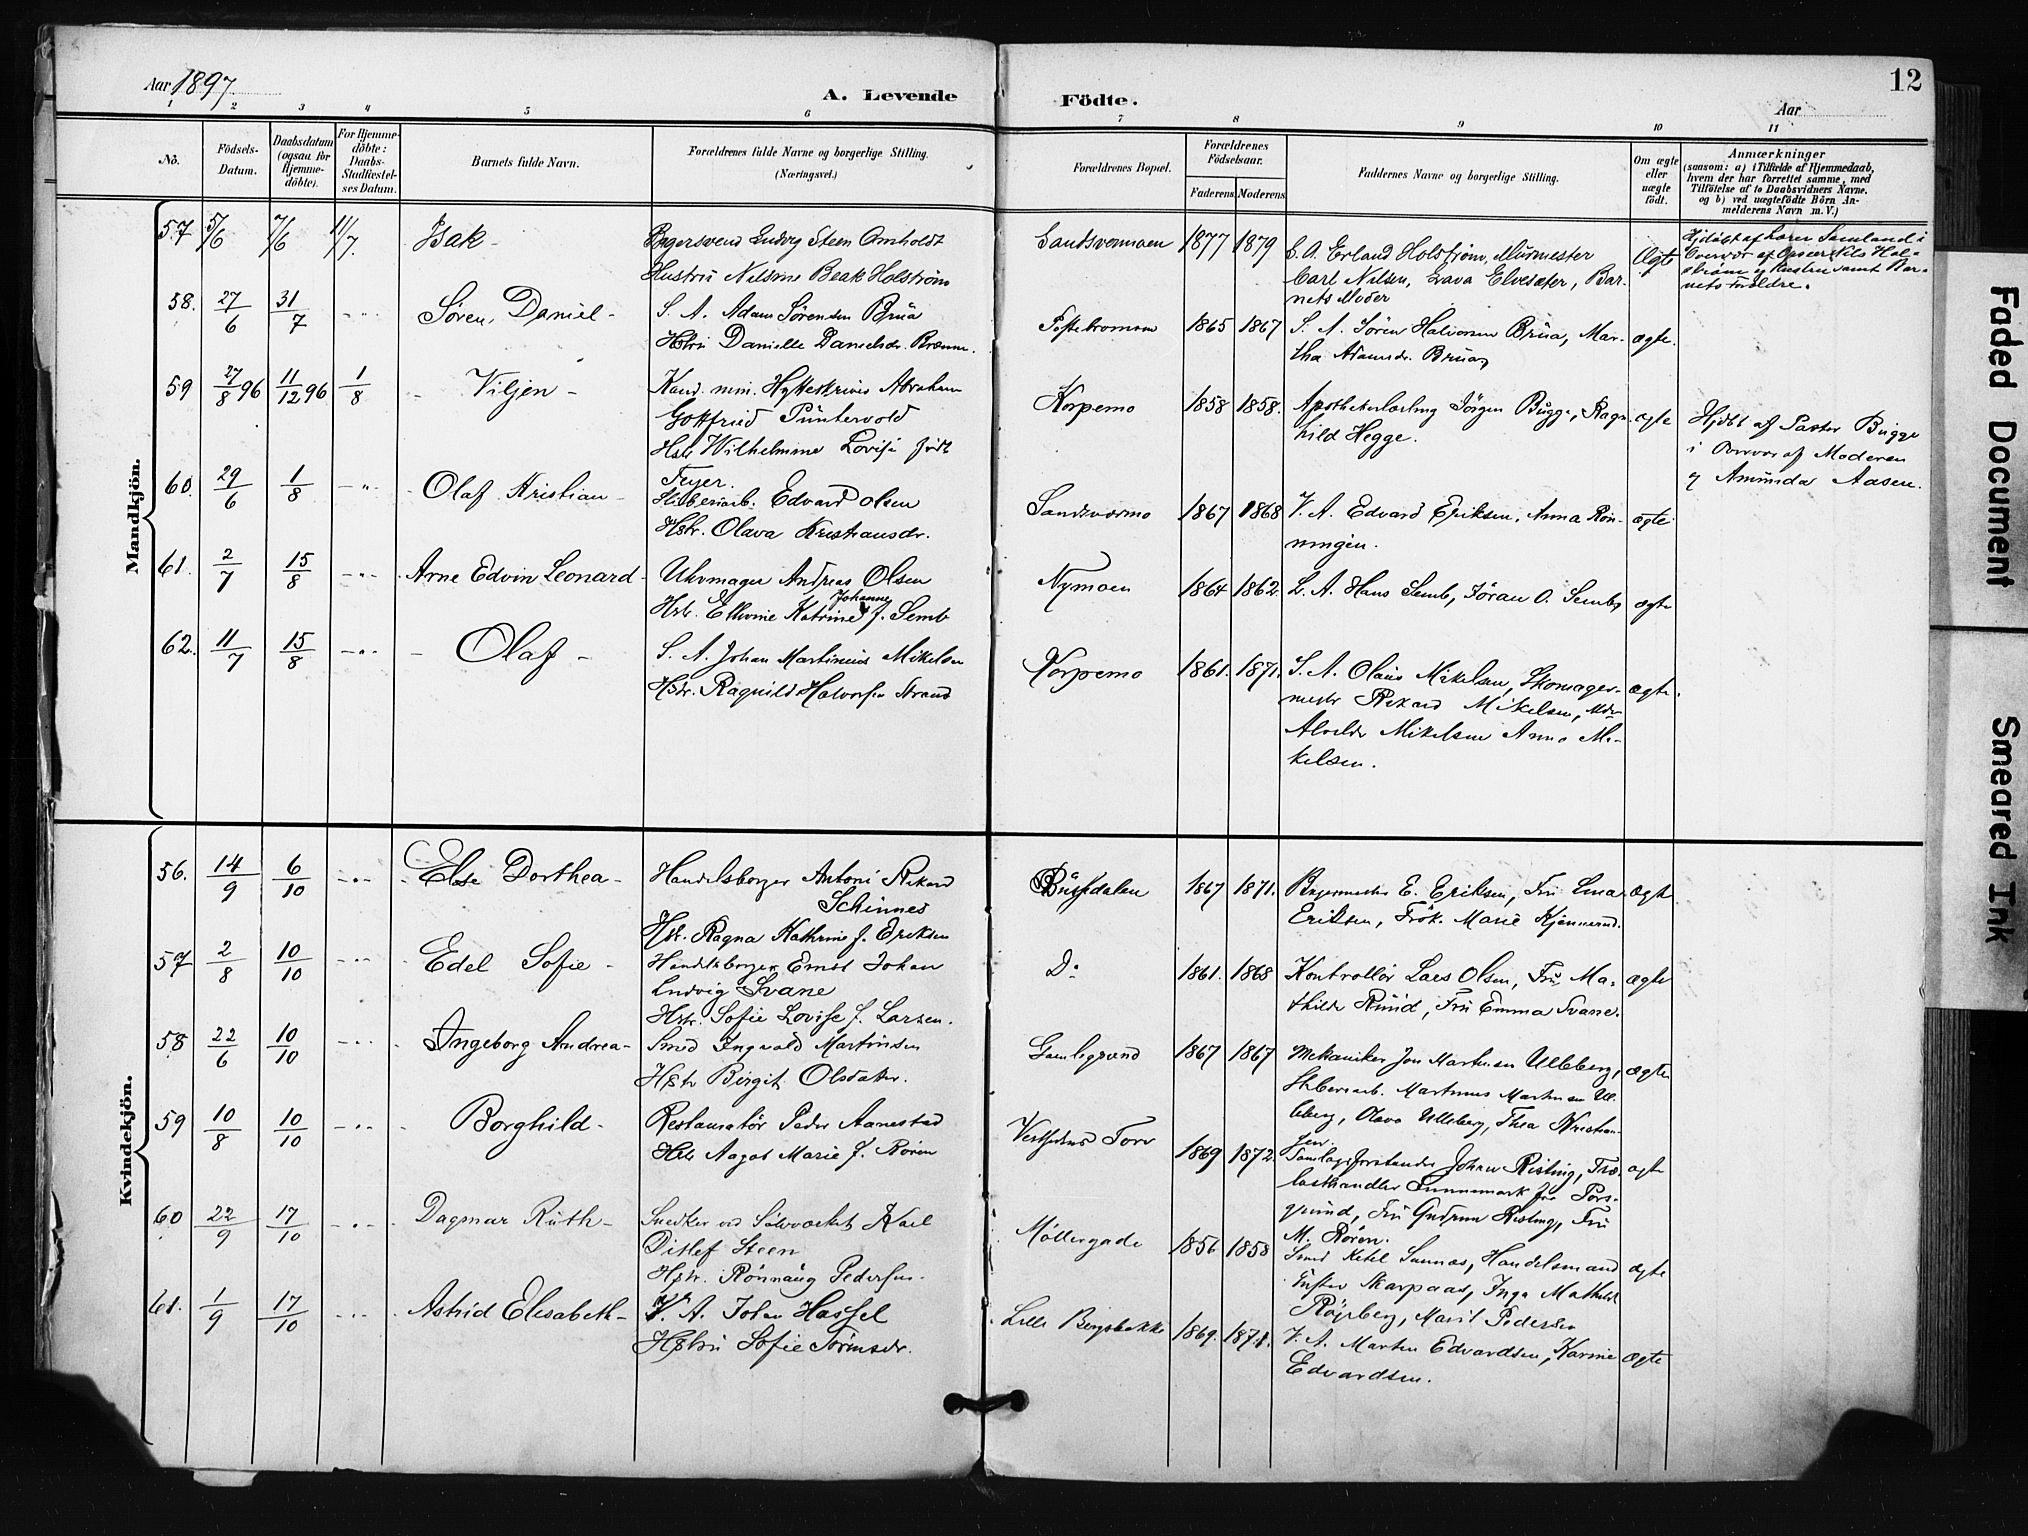 Aar 1897
A. Levende
Födte.
Aar
12
1 2 3 4 5 6 7 8 9 10 11
No.
Födsels-
Datum.
Daabsdatum
(ogsaa for
Hjemme-
döbte).
For Hjemme-
döbte:
Daabs-
Stadfæstel-
ses Datum.
Barnets fulde Navn.
Forældrenes fulde Navne og borgerlige Stilling.
(Næringsvei.)
Forældrenes Bopæl.
Forældrenes
Födselsaar.
Faderens Moderens
Faddernes Navne og borgerlige Stilling.
Om ægte
eller
uægte
födt.
Anmærkninger
(saasom: a) i Tilfælde af Hjemmedaab,
hvem der har forrettet samme, med
Tilföielse af to Daabsvidners Navne.
og b) ved uægtefödte Börn An-
melderens Navn m. V.)
Mandkjön.
57 5/6 7/6 11/7. Isak -
Ludvig Steen Omholdt
Hustru Nilsine Beak Holström
Sandsværmoen 1877 1879
E. A. Erland Holström, Murmester
Carl Nilsen, Elvesæter, Bar-
nets Moder
Ægte
Hjdöbt af Lærer Samland i
Overvær af Opseer Nils Hol-
ström og Hustru samt Bar-
nets Forældre.
58. 27/6 31/7 - " - Søren Daniel -
S. A. Adam Sørensen Brua
Hstru Danielle Danielsdr.
1865 1867
S. A. Sören Halvorsen Brua, Mar-
tha Adamsdr. Brua
ægte.
59 27/8 96 11/12 96 1/8 - Viljen -
Kand. min. Hytteskriver Abraham
Gottfried Püntervold
Hstr Wilhelmine Lovise födt
Feyer.
Korpemo 1858 1858.
Jörgen Bugge, Ragn-
hild Hegge.
ægte
Hjdbt af Pastor Bugge
i Overvær af Moderen
og Amunda Aasen.
60. 29/6 1/8 - " - Olaf Kristian -
Edvard Olsen
Hstr. Olava Kristiansdr.
Sandsværmo 1867 1868
V. A. Edvard Eriksen, Anna Rön-
ningen.
ægte
61. 2/7 15/8 - " - Arne Edvin Leonard -
Uhrmager Andreas Olsen
Johanne
Hstr. Katrine f. Semb
Nymoen 1864 1862
L. A. Hans Semb, Jöran O. Semb
ægte
62. 11/7 15/8 - " - Olaf -
S. A. Johan Martinius Mikelsen
Hstr. Ragnild Halvorsen Strand
Korpemo 1861. 1871.
S. A. Olaus Mikelsen, Skomager-
mester Rikard Mikelsen,
Alvilde Mikelsen Anna Mi-
kelsen.
ægte.
Kvindekjön.
56. 14/9 6/10 - " - Else Dorthea -
Handelsborger Antoni Rikard
Schinnes
Hstr. Ragna Kathrine f. Eriksen
1867 1871.
E. Eriksen, Fru Lina
Eriksen, Frök. Marie Kjennerud.
ægte
57 2/8 10/10 - " - Edel Sofie -
Handelsborger Ernst Johan
Ludvig Svane
Hstr. Sofie Lovise f. Larsen.
Do 1861. 1868
Kontrollör Laes Olsen, Fru Ma-
thilde Ruud, Fru Emma Svane.
ægte
58 22/6 10/10 - " - Ingeborg Andrea -
Smed Ingvald Martinsen
Hstr Birgit Olsdatter.
Gamlegrænd 1867 1867
Mekaniker Jon Martinsen Ulleberg,
Martinus Martinsen Ul-
leberg, Olava Ulleberg, Thea Kristian-
sen.
ægte
59 10/8 10/10 - " - Borghild -
Restauratör Peder Aanestad
Hstr Aagot Marie f. Rören
Vestsidens Torv 1869 1872
Samlagsforstander Johan Risting, Træ-
lasthandler fra Pors-
grund, Fru Gudrun Risting, Fru
M. Rören.
ægte
60 22/9 17/10 - " - Dagmar Ruth -
Snedker ved Sölvværket Karl
Ditlef Steen
Hstr. Rönnaug Pedersen.
Möllergade 1856 1858
Smed Ketel Sunnaas, Handelsmand
Skarpaas, Inga Mathilde
Röyseberg, Marit Pedersen
ægte
61. 1/9 17/10 - " - Astrid Elisabeth -
V. A. Johan Hassel
Hstru Sofie
Lille Bergsbakke 1869. 1871.
V. A. Martin Edvardsen, Karine
Edvardsen.
ægte
Faded Document
Smeared Ink